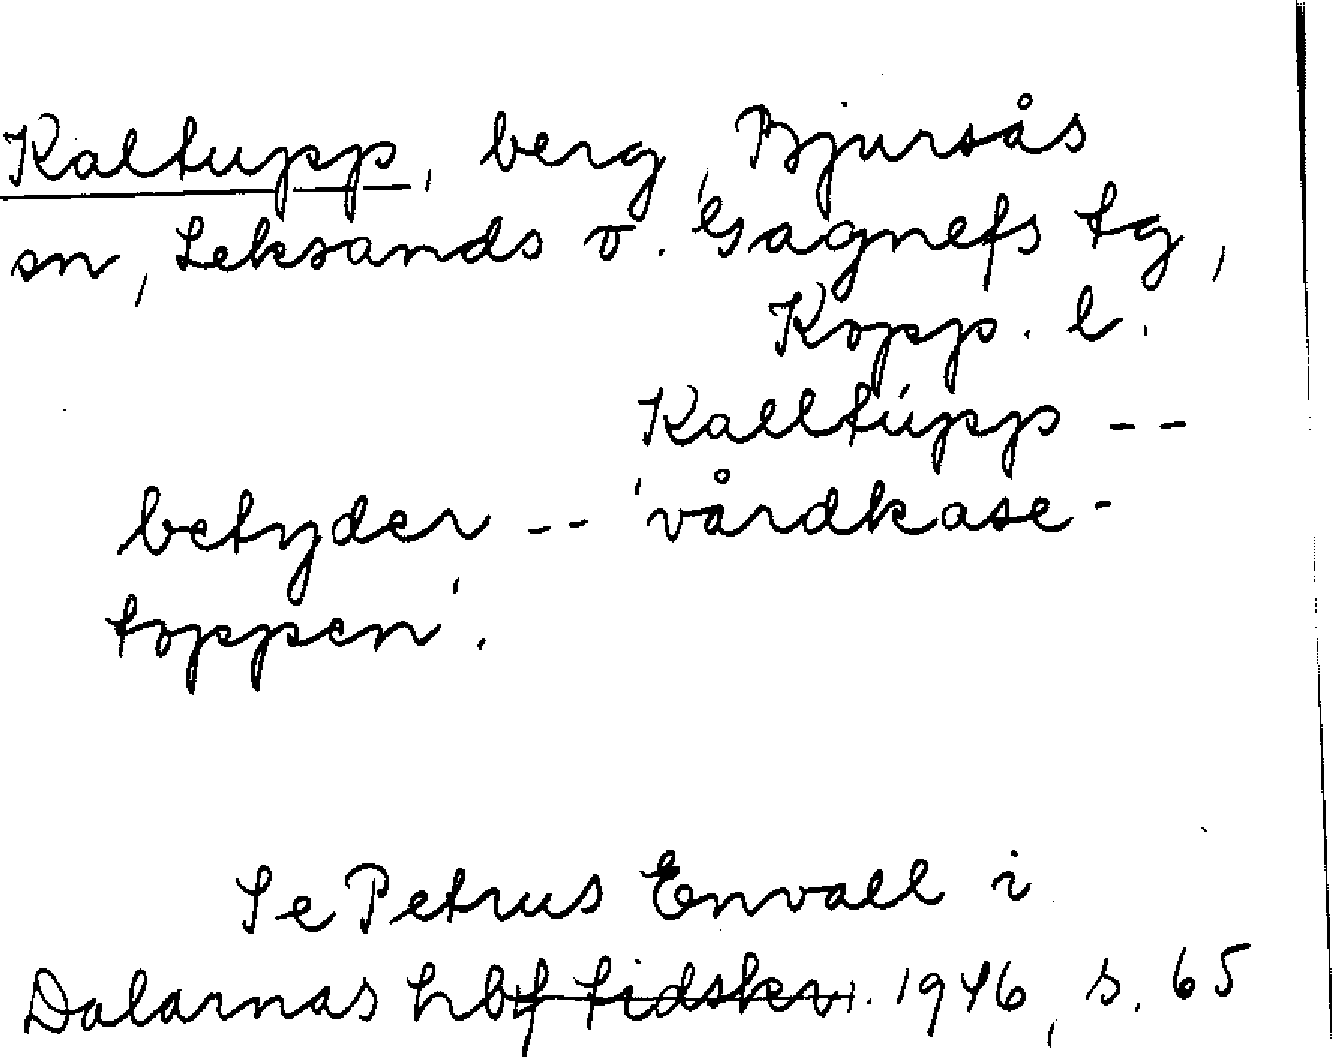 Kaltupp, berg, Bjursås
sn, Leksands o. Gagnefs tg,
Kopp. l.
Kalltúpp --
betyder -- 'vårdkase-
toppen'.
Se Petrus Envall i
Dalarnas hbf tidskr. 1946, s. 65